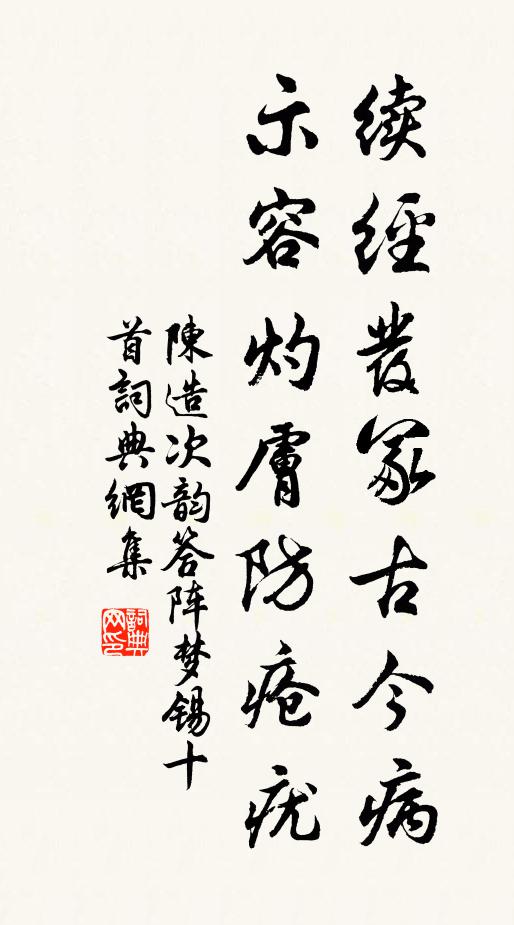 续經發冢古今病
示容灼膚防瘡疣
陳造次韵答阵梦錫十
首詞典網集
詞典网印